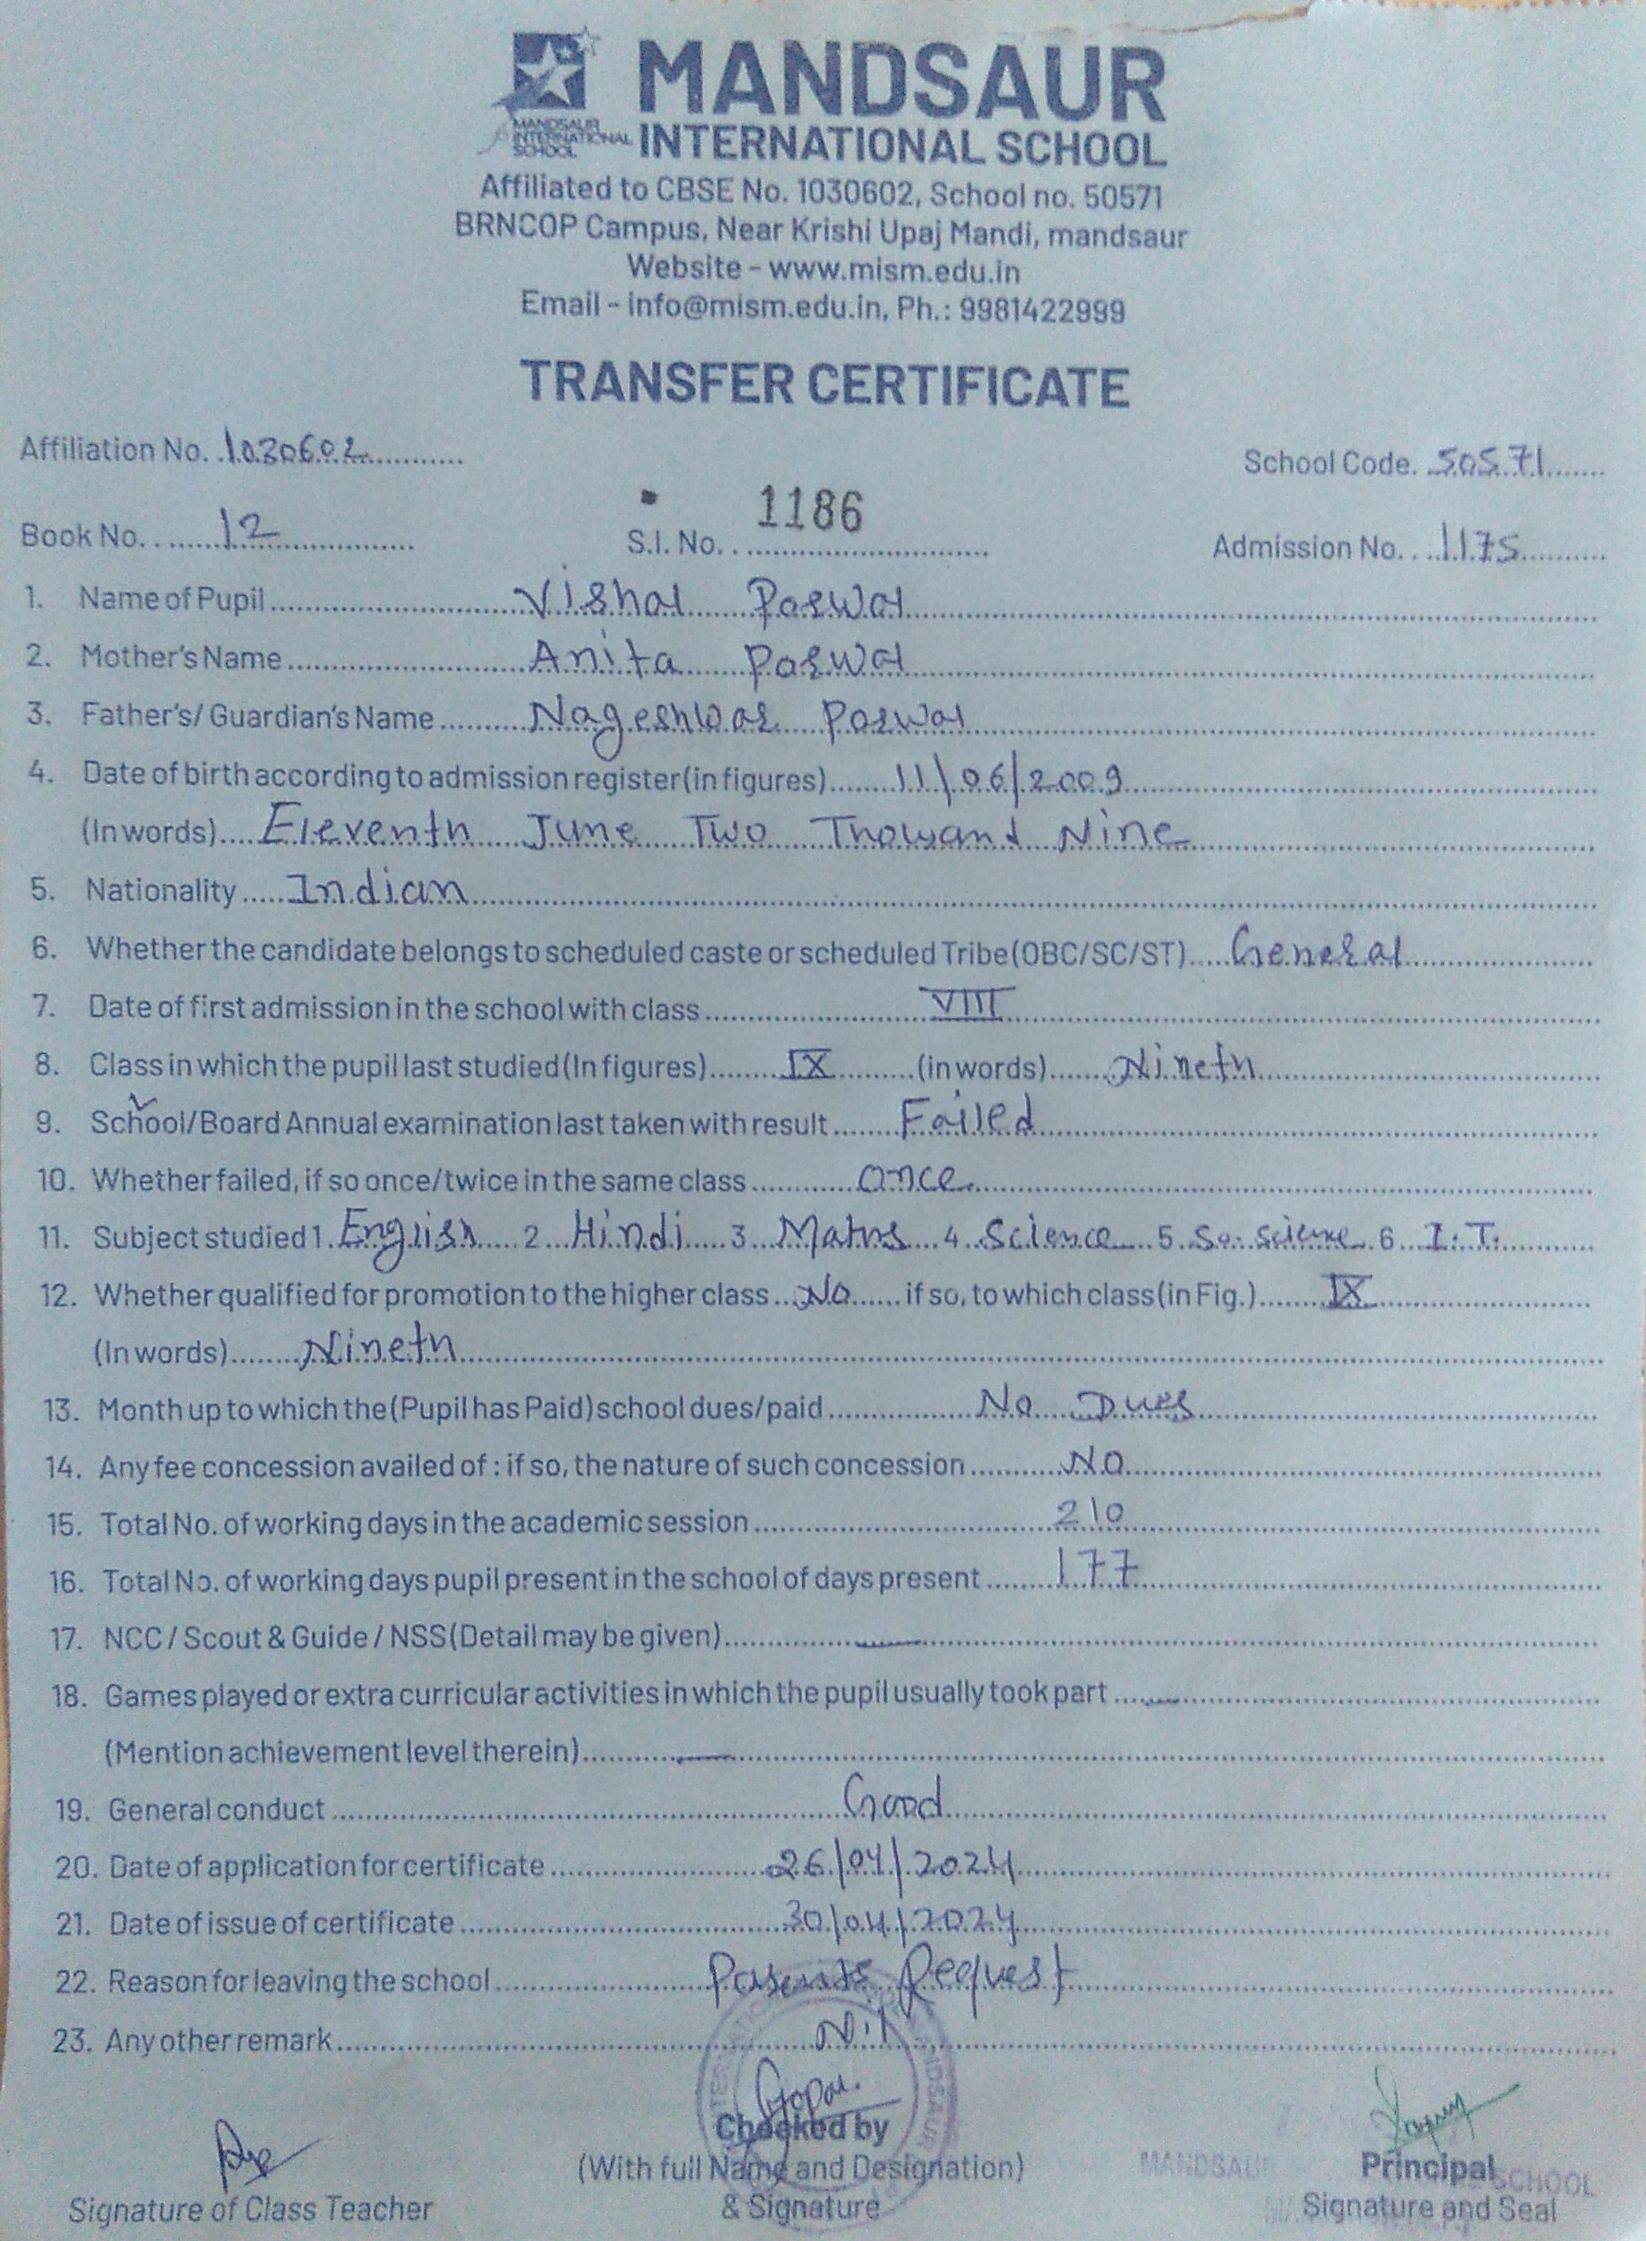 MANDSAUR
MANDSAUR INTERNATIONAL SCHOOL
INTERNATIONAL SCHOOL
Affiliated to CBSE No. 1030602, School no. 50571
BRNCOP Campus, Near Krishi Upaj Mandi, mandsaur
Website - www.mism.edu.in
Email - info@mism.edu.in, Ph.: 9981422999
TRANSFER CERTIFICATE
Affiliation No. 1030602 School Code. 50571
Book No. 12 S.I. No. 1186 Admission No. 1175
1. Name of Pupil Vishal Parwal
2. Mother's Name Anita Parwal
3. Father's/ Guardian's Name Nageshwar Parwal
4. Date of birth according to admission register (in figures) 11/06/2009
(In words) Eleventh June Two Thousand Nine
5. Nationality Indian
6. Whether the candidate belongs to scheduled caste or scheduled Tribe (OBC/SC/ST) General
7. Date of first admission in the school with class VIII
8. Class in which the pupil last studied (In figures) IX (in words) Nineth
9. School/Board Annual examination last taken with result Failed
10. Whether failed, if so once/twice in the same class once
11. Subject studied 1. English 2. Hindi 3. Maths 4. Science 5. So. science 6. I.T.
12. Whether qualified for promotion to the higher class No if so, to which class (in Fig.) IX
(In words) Nineth
13. Month up to which the (Pupil has Paid) school dues/paid No Dues
14. Any fee concession availed of : if so, the nature of such concession NO
15. Total No. of working days in the academic session 210
16. Total No. of working days pupil present in the school of days present 177
17. NCC / Scout & Guide / NSS (Detail may be given) —
18. Games played or extra curricular activities in which the pupil usually took part —
(Mention achievement level therein) —
19. General conduct Good
20. Date of application for certificate 26/04/2024
21. Date of issue of certificate 30/04/2024
22. Reason for leaving the school Parents Request
23. Any other remark Nil
Checked by
(With full Name and Designation) MANDSAUR SCHOOL Principal
Signature of Class Teacher & Signature Signature and Seal